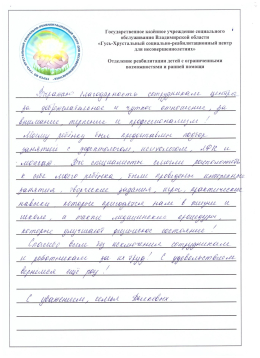 Государственное казённое учреждение социального
обслуживания Владимирской области
«Гусь-Хрустальный социально-реабилитационный центр
для несовершеннолетних»
Отделение реабилитации детей с ограниченными
возможностями и ранней помощи
Выражаю благодарность сотрудникам центра
за доброжелательное и чуткое отношение, за
внимание, терпение и профессионализм!
Моему ребёнку был предоставлен
занятий с дефектологом, психологом, ЛФК и
массаж. Эти специалисты смогли расположить
к себе моего ребёнка, были проведены интересные
занятия, творческие задания, игры, практические
навыки которые пригодятся нам в жизни и
школе, а также медицинские процедуры,
которые улучшают физическое состояние!
Спасибо всем сотрудникам
и работникам за их труд! С удовольствием
вернемся ещё раз!
С уважением, семья